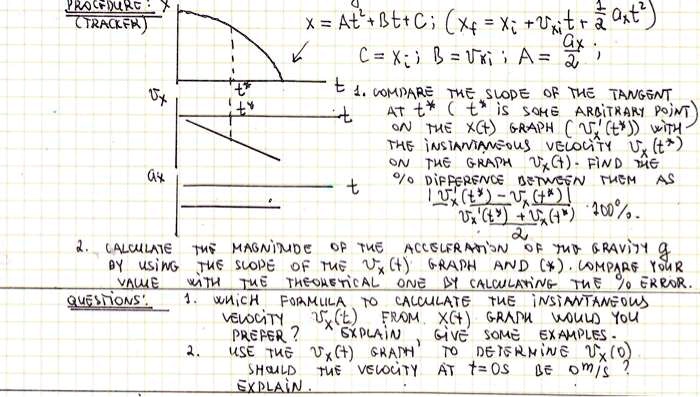 PROCEDURE: X
(TRACKER)
x = At² + Bt + C ; (x_f = x_i + v_xi t + 1/2 a_x t²)
C = x_i ; B = v_xi ; A = a_x/2 ;
t* t
v_x t* t
a_x t
1. COMPARE THE SLOPE OF THE TANGENT
AT t* ( t* IS SOME ARBITRARY POINT)
ON THE X(t) GRAPH ( v_x'(t*)) WITH
THE INSTANTANEOUS VELOCITY v_x(t*)
ON THE GRAPH v_x(t). FIND THE
% DIFFERENCE BETWEEN THEM AS
|v_x'(t*) - v_x(t*)|
v_x'(t*) + v_x(t*) · 100%.
2
2. CALCULATE THE MAGNITUDE OF THE ACCELERATION OF THE GRAVITY g
BY USING THE SLOPE OF THE v_x(t) GRAPH AND (*). COMPARE YOUR
VALUE WITH THE THEORETICAL ONE BY CALCULATING THE % ERROR.
QUESTIONS: 1. WHICH FORMULA TO CALCULATE THE INSTANTANEOUS
VELOCITY v_x(t) FROM X(t) GRAPH WOULD YOU
PREFER? EXPLAIN, GIVE SOME EXAMPLES.
2. USE THE v_x(t) GRAPH TO DETERMINE v_x(0).
SHOULD THE VELOCITY AT t=0s BE 0 m/s ?
EXPLAIN.